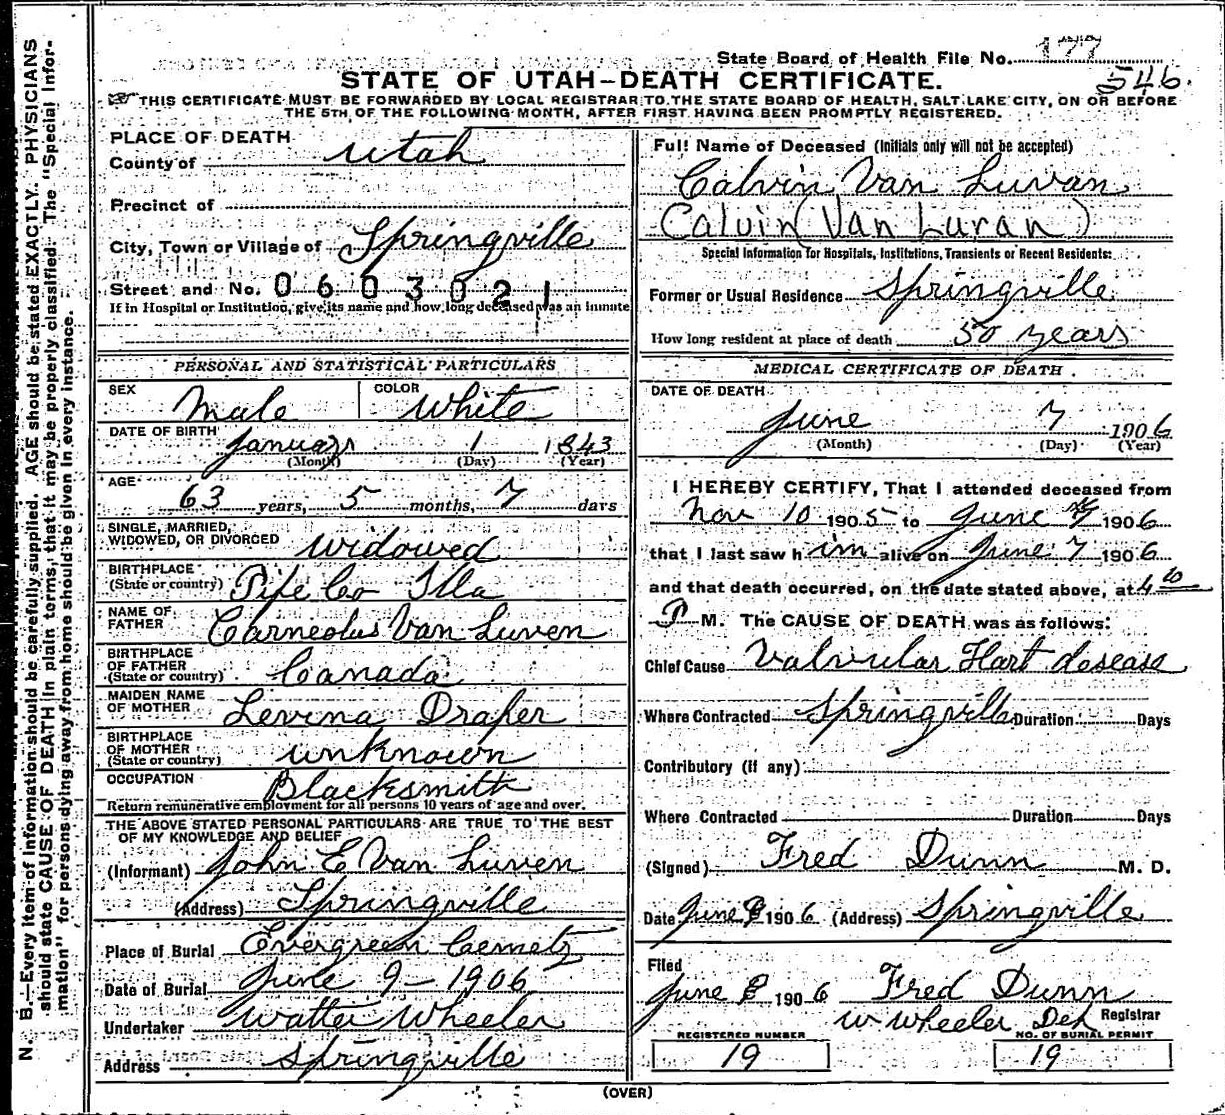 State Board of Health File No. 177
546.
STATE OF UTAH—DEATH CERTIFICATE.
THIS CERTIFICATE MUST BE FORWARDED BY LOCAL REGISTRAR TO THE STATE BOARD OF HEALTH, SALT LAKE CITY, ON OR BEFORE
THE 5TH OF THE FOLLOWING MONTH, AFTER FIRST HAVING BEEN PROMPTLY REGISTERED.
N. B.—Every item of information should be carefully supplied. AGE should be stated EXACTLY. PHYSICIANS
should state CAUSE OF DEATH in plain terms, that it may be properly classified. The "Special Infor-
mation" for persons dying away from home should be given in every instance.
PLACE OF DEATH
County of Utah
Precinct of
City, Town or Village of Springville
Street and No. 0603021
If in Hospital or Institution, give its name and how long deceased was an inmate
PERSONAL AND STATISTICAL PARTICULARS
SEX Male COLOR White
DATE OF BIRTH January 1 1843
(Month) (Day) (Year)
AGE 63 years, 5 months, 7 days
SINGLE, MARRIED,
WIDOWED, OR DIVORCED widowed
BIRTHPLACE
(State or country) Pife Co Ills
NAME OF
FATHER Carneolus Van Luven
BIRTHPLACE
OF FATHER
(State or country) Canada
MAIDEN NAME
OF MOTHER Levina Draper
BIRTHPLACE
OF MOTHER
(State or country) unknown
OCCUPATION Blacksmith
Return remunerative employment for all persons 10 years of age and over.
THE ABOVE STATED PERSONAL PARTICULARS ARE TRUE TO THE BEST
OF MY KNOWLEDGE AND BELIEF
(Informant) John E Van Luven
(Address) Springville
Place of Burial Evergreen Cemetz
Date of Burial June 9 - 1906
Undertaker Walter Wheeler
Address Springville
Full Name of Deceased (Initials only will not be accepted)
Calvin Van Luvan
Calvin (Van Luran)
Special Information for Hospitals, Institutions, Transients or Recent Residents:
Former or Usual Residence Springville
How long resident at place of death 50 years
MEDICAL CERTIFICATE OF DEATH.
DATE OF DEATH
June 7 1906
(Month) (Day) (Year)
I HEREBY CERTIFY, That I attended deceased from
Nov 10 1905 to June 7 1906
that I last saw him alive on June 7 1906
and that death occurred, on the date stated above, at 4 10
P M. The CAUSE OF DEATH was as follows:
Chief Cause Valvular Hart desease
Where Contracted Springville Duration Days
Contributory (if any)
Where Contracted Duration Days
(Signed) Fred Dunn M. D.
Date June 8 1906 (Address) Springville
Filed
June 8 1906 Fred Dunn
W Wheeler Dep Registrar
REGISTERED NUMBER NO. OF BURIAL PERMIT
19 19
(OVER)